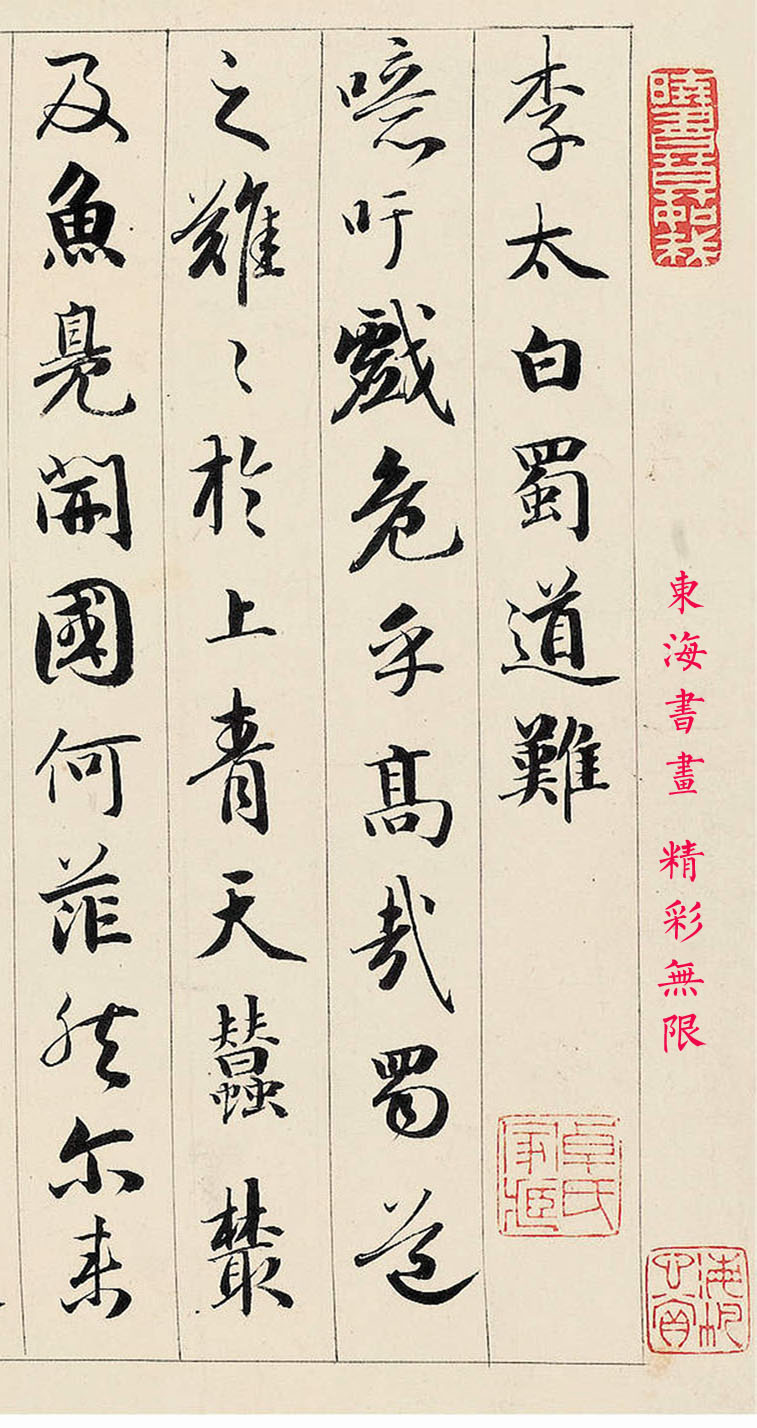 東海書畫 精彩無限
李太白蜀道難
卓氏家藏
噫吁戲危乎髙哉蜀道
之難〻於上青天蠶叢
及魚鳧開國何茫然尔来